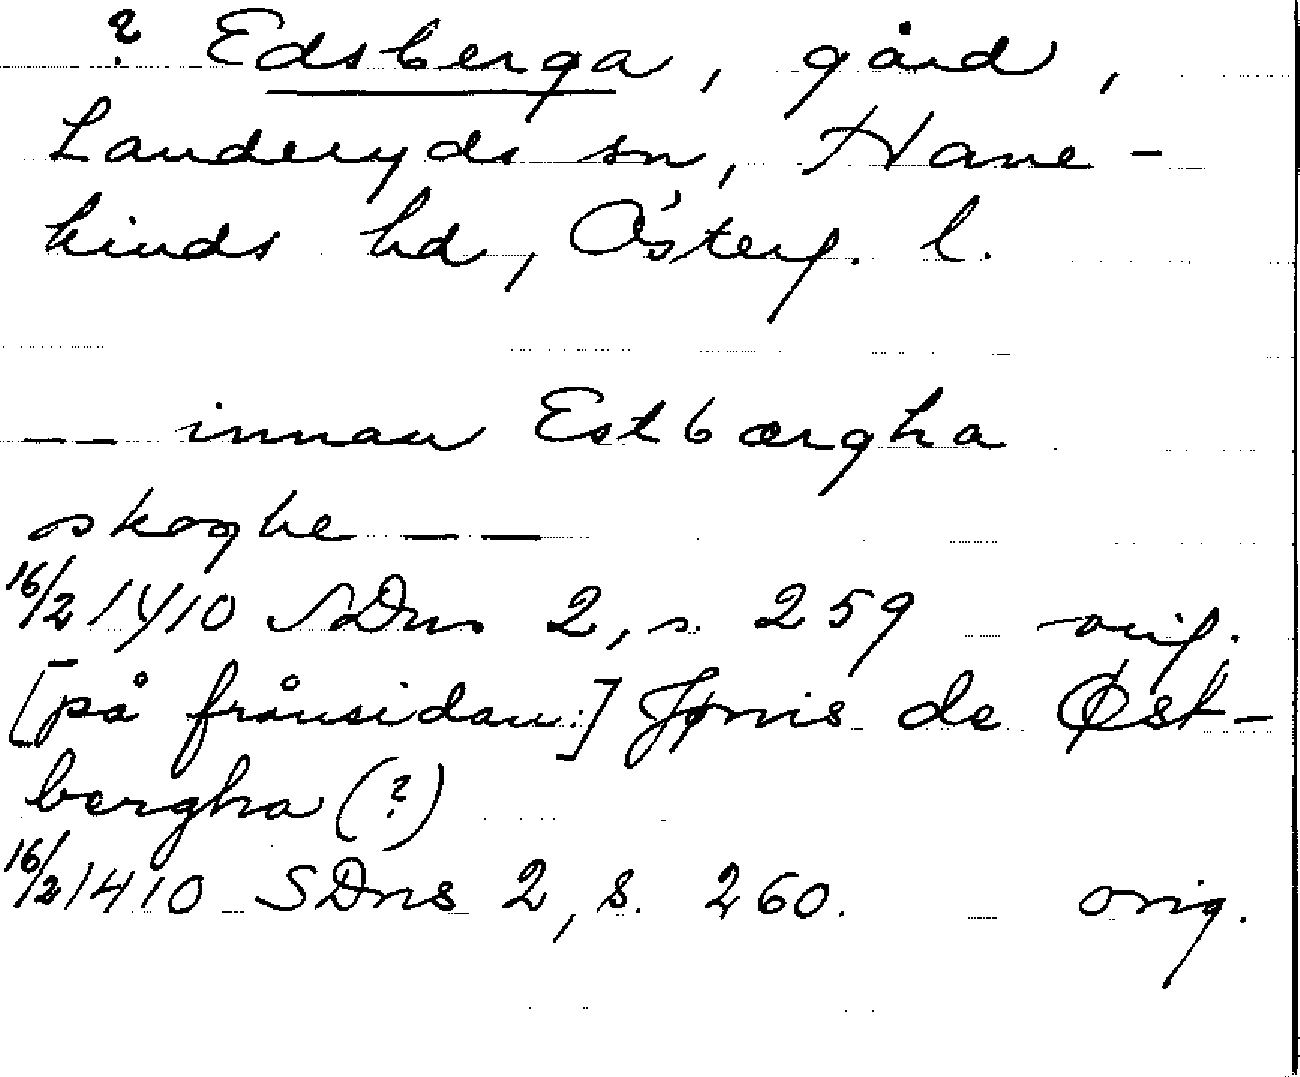 ? Edsberga, gård,
Landeryds sn, Hane-
kinds hd, Österg. l.
-- innan Estbærgha
skoghe --
16/2 1410 SDns 2, s. 259 orig.
[på frånsidan:] Jønis de Øst-
bergha (?)
16/2 1410 SDns 2, s. 260. orig.